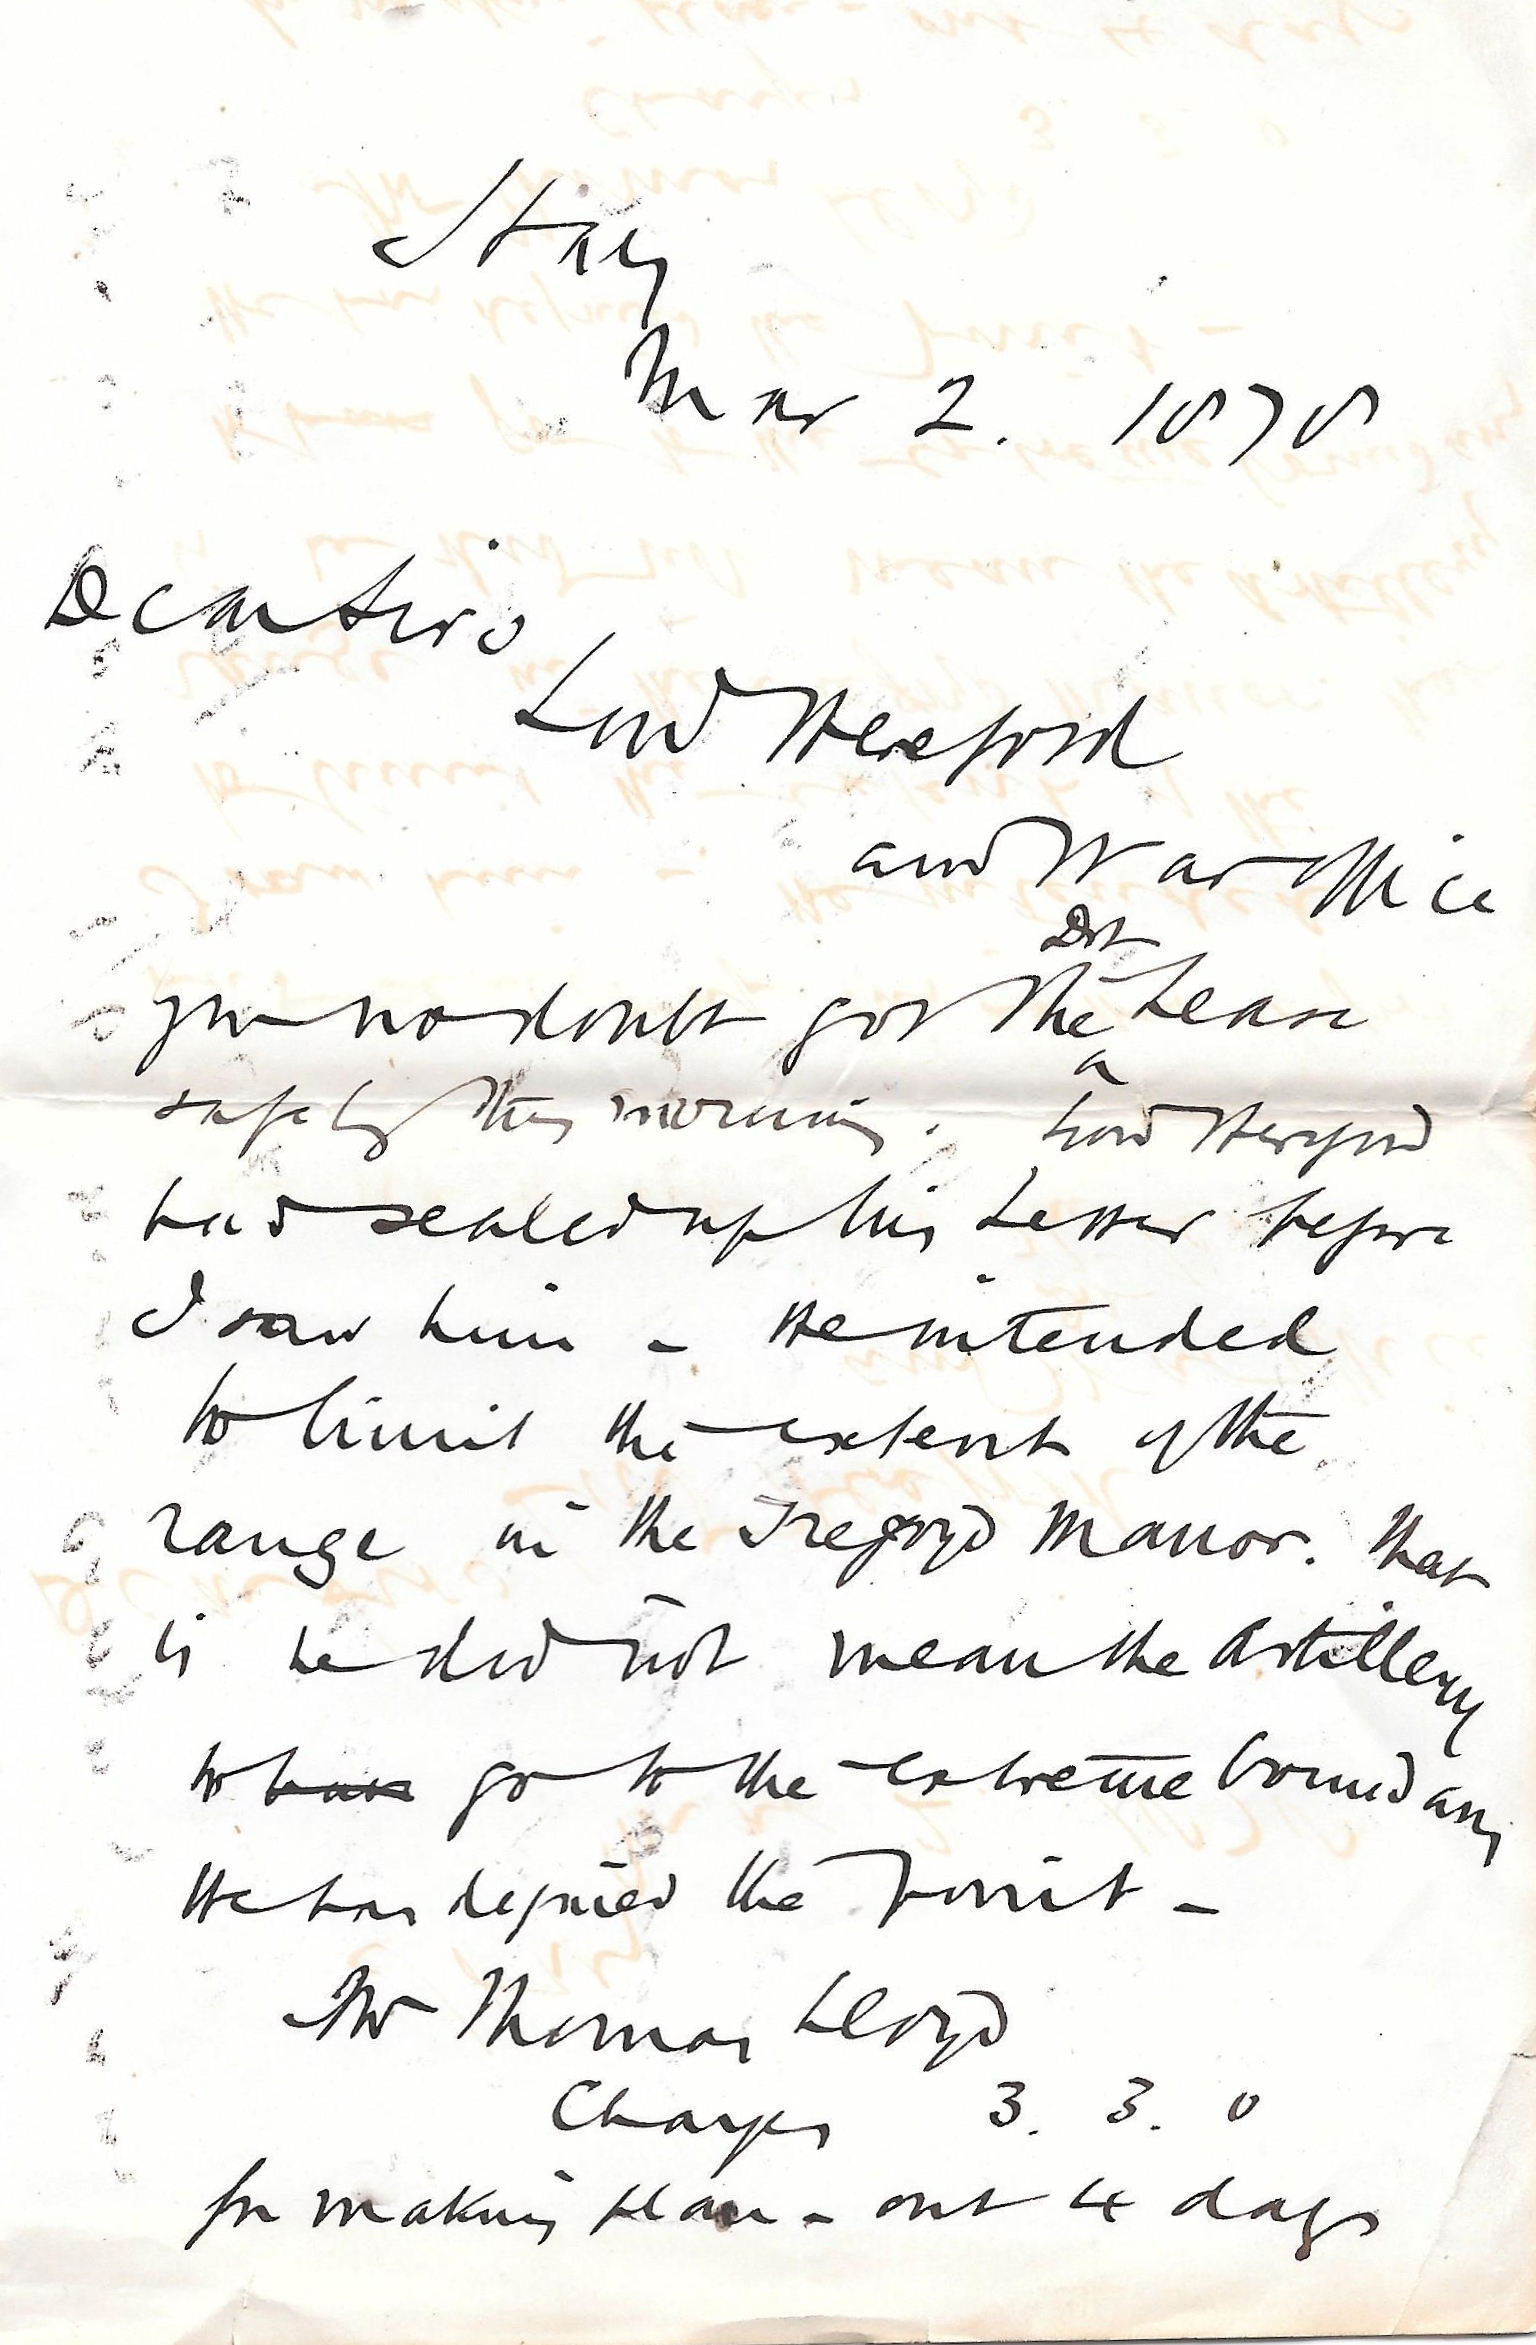 Hay
Mar 2. 1878
Dear Sirs
Lord Hereford
and War Office
Dft
you no doubt got the ^ Lease
safely this morning. Lord Hereford
had sealed up his Letter before
I saw him - He intended
to limit the extent of the
range in the Tregoyd Manor. that
is he did not mean the Artillery
to go to the extreme boundary
He has defined the Point -
Mr Thomas Lloyd
Charges 3. 3. 0
for making plan - out 4 days